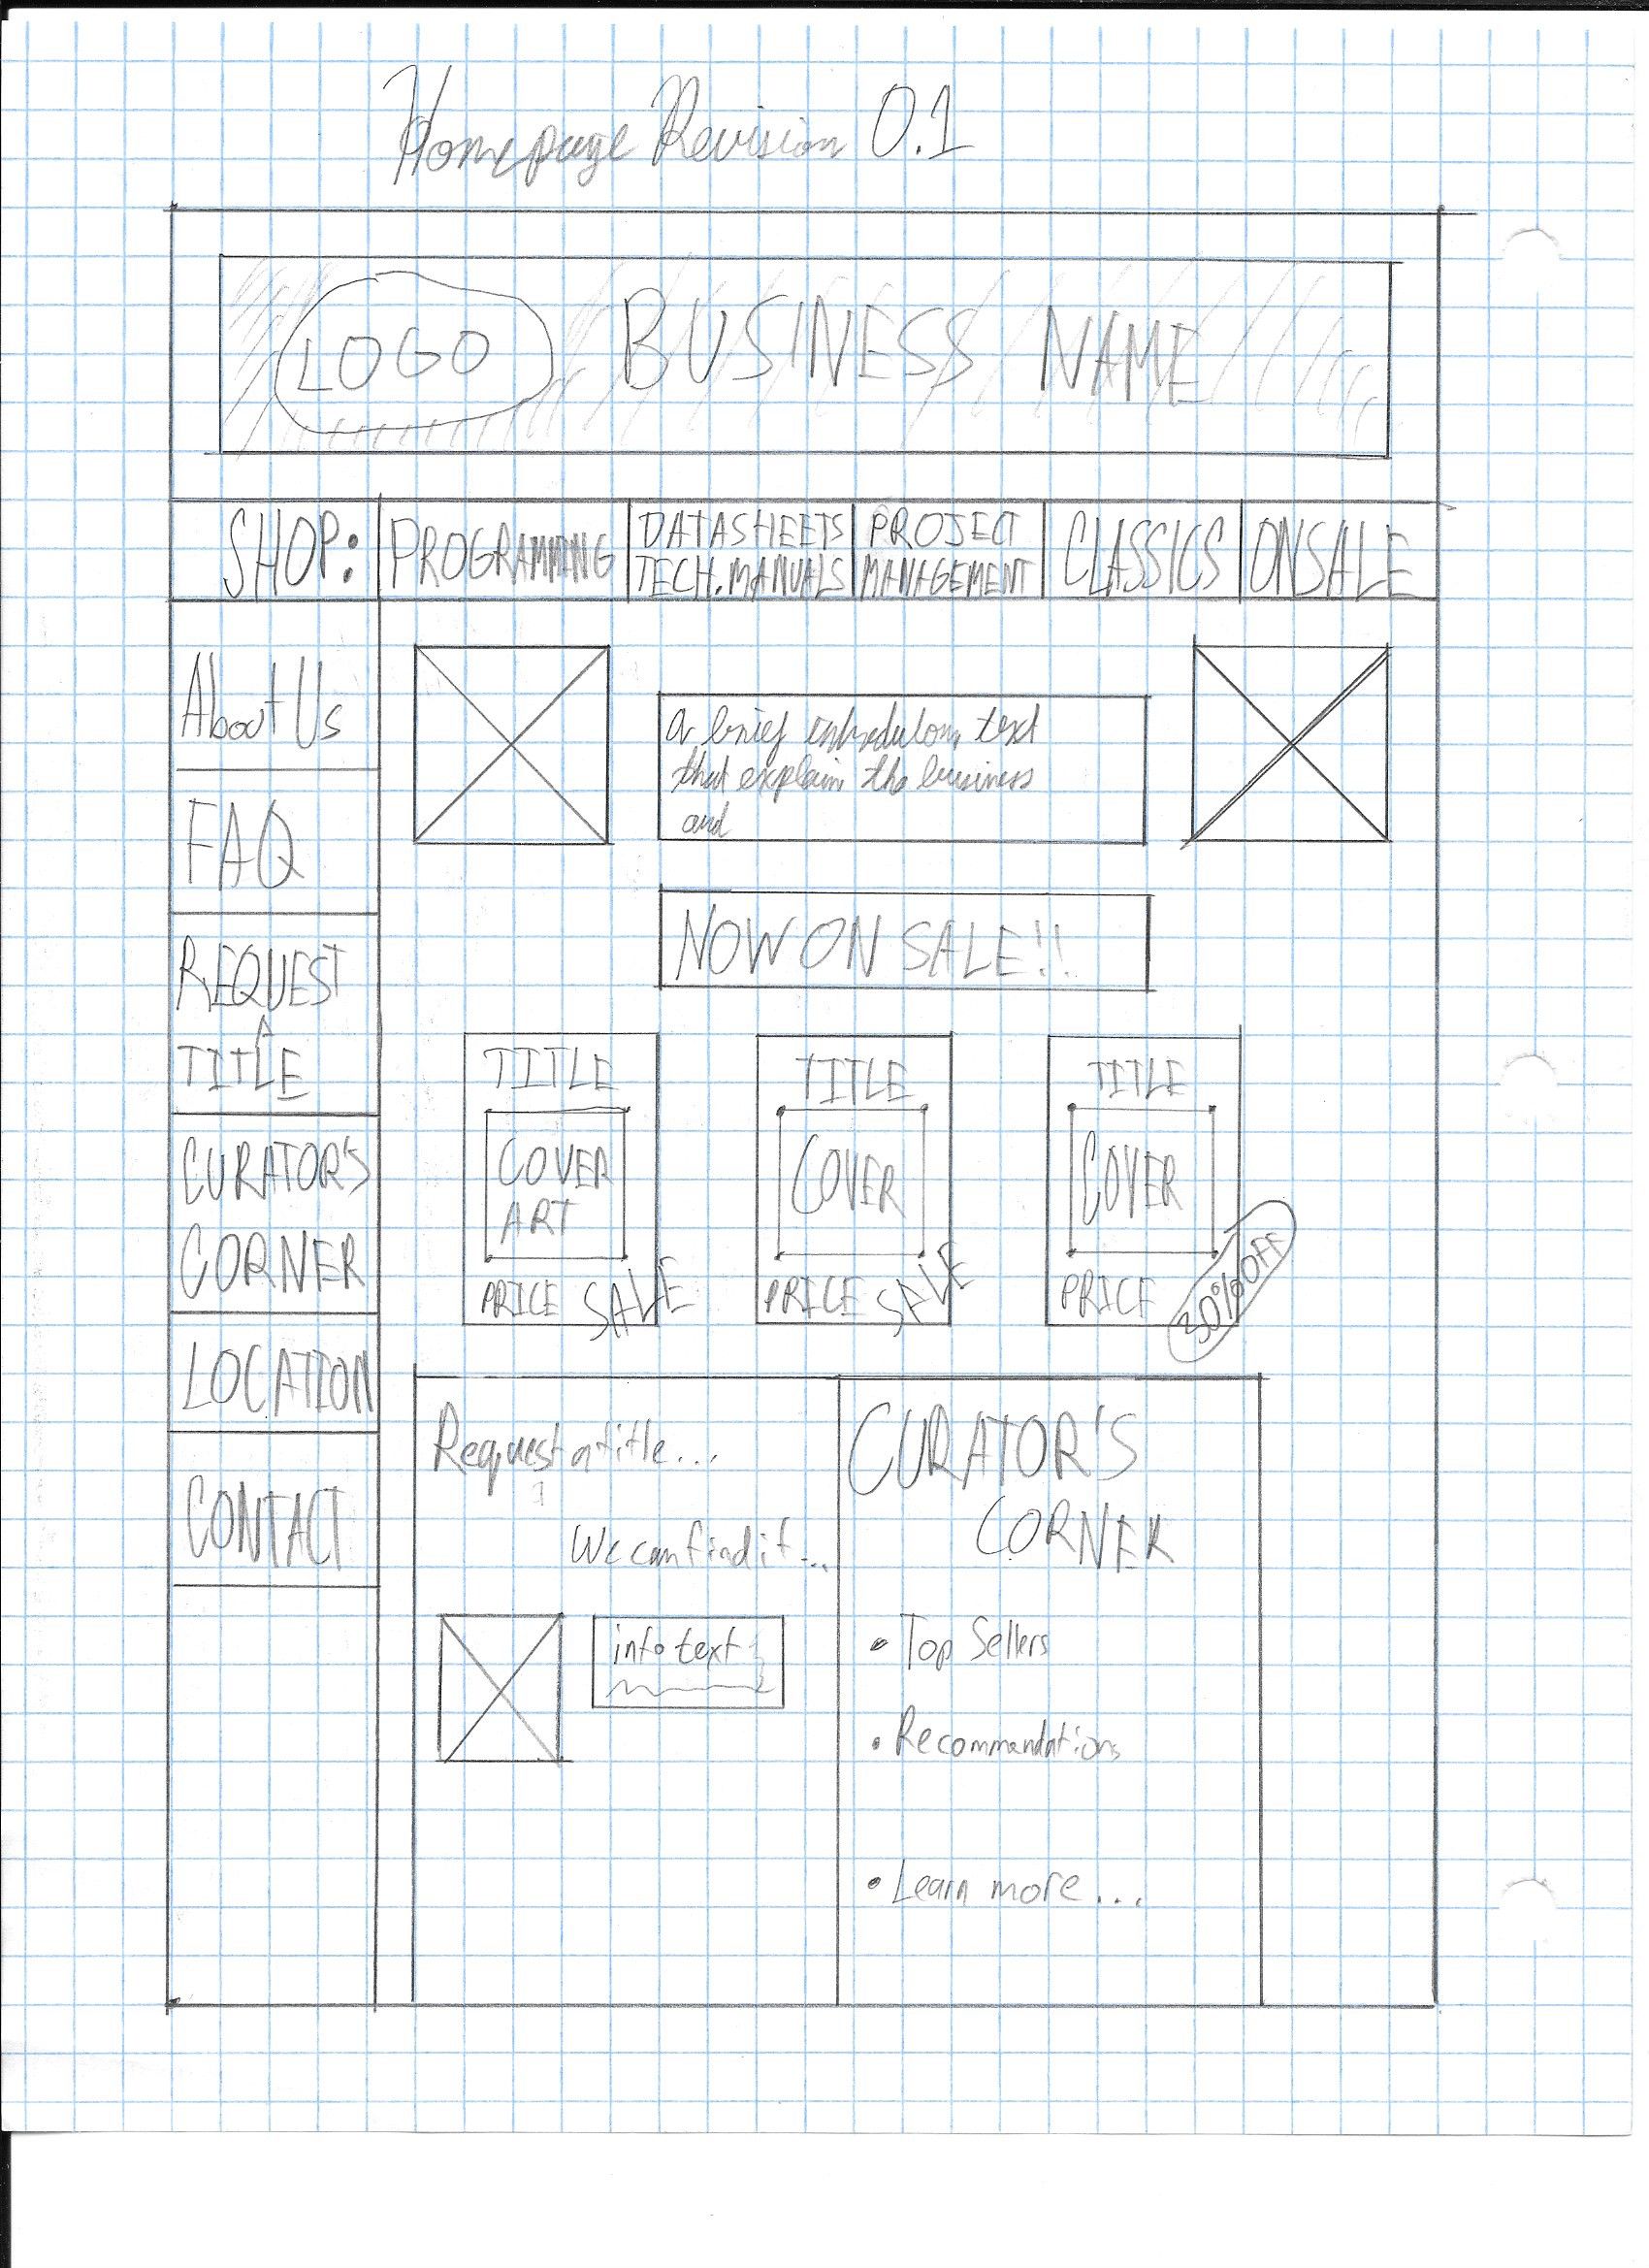 Homepage Revision 0.1
LOGO
BUSINESS NAME
SHOP:
PROGRAMMING
DATASHEETS
TECH. MANUALS
PROJECT
MANAGEMENT
CLASSICS
ONSALE
About Us
FAQ
REQUEST
A
TITLE
CURATOR'S
CORNER
LOCATION
CONTACT
a brief text
that explain the business
and
NOW ON SALE!!
TITLE
COVER
ART
PRICE SALE
TITLE
COVER
PRICE SALE
TITLE
COVER
PRICE
30% OFF
Request a title...
We can find it...
info text
CURATOR'S
CORNER
• Top Sellers
• Recommandations
• Learn more...